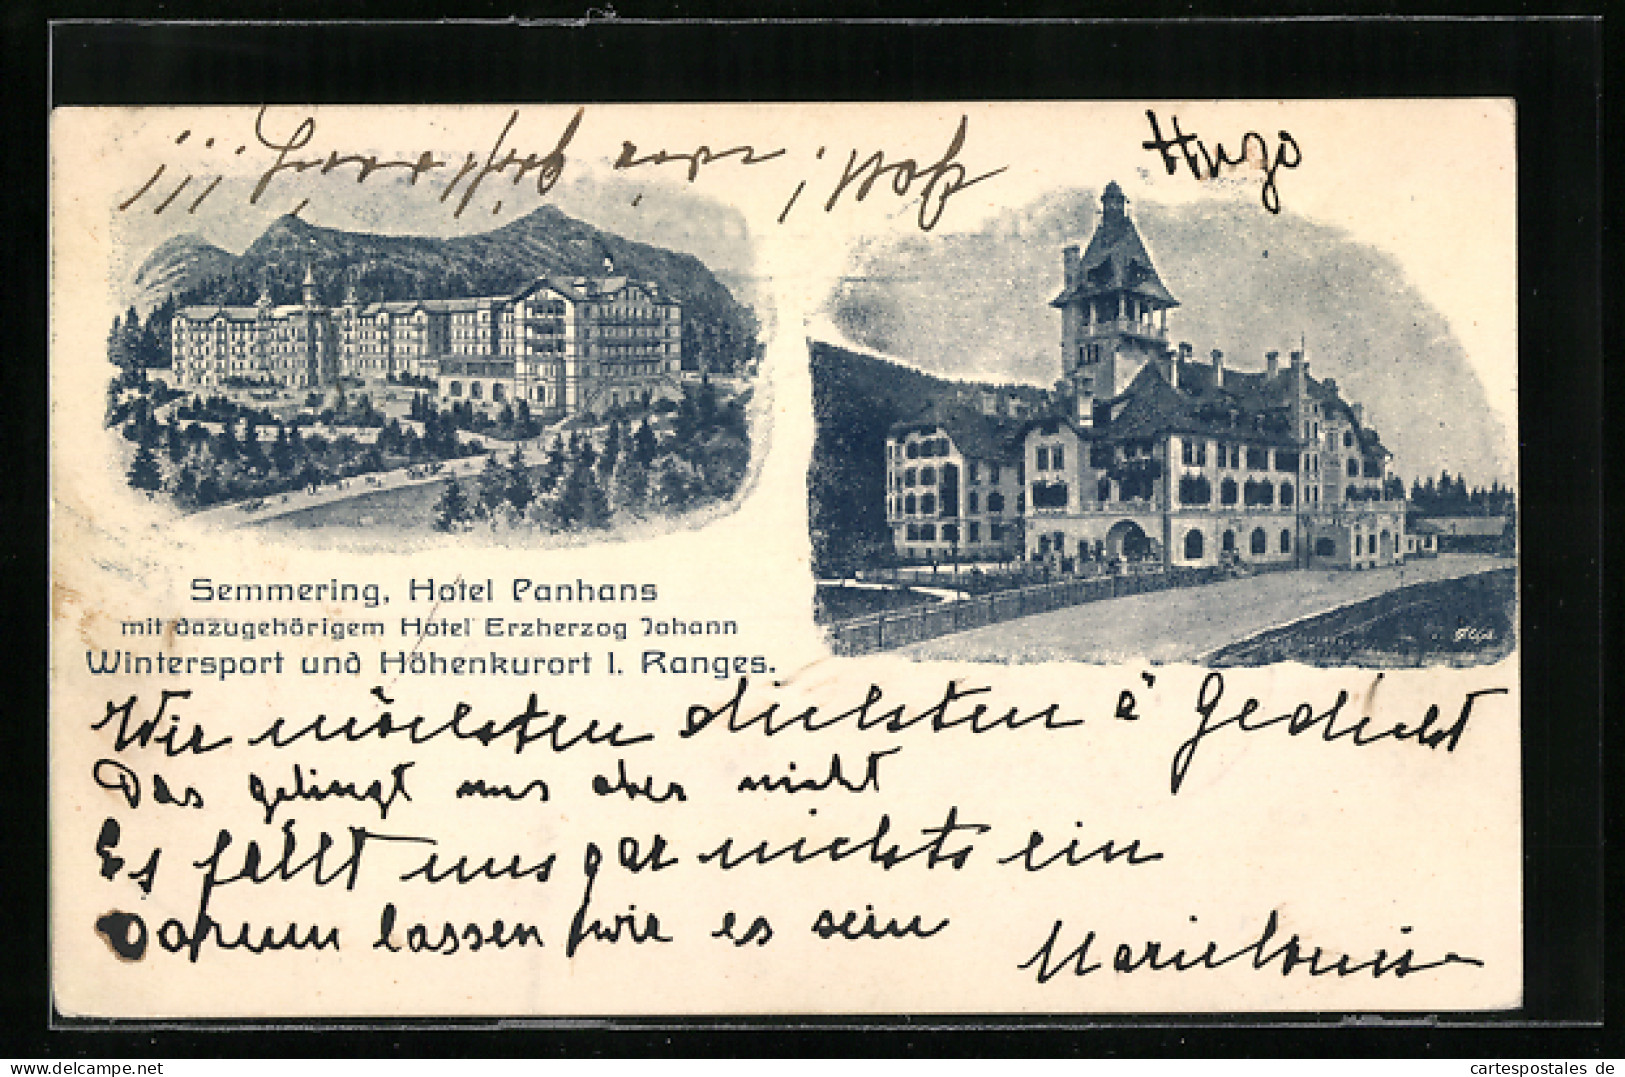 Hugo
Semmering, Hotel Panhans
mit dazugehörigem Hotel Erzherzog Johann
Wintersport und Höhenkurort I. Ranges.
Wir möchsten dichsten a Gedicht
Das gelingt uns aber nicht
Es fällt uns gar nichts ein
Darum lassen wir es sein
Marielouise
cartespostales de
www.cartespostales.eu